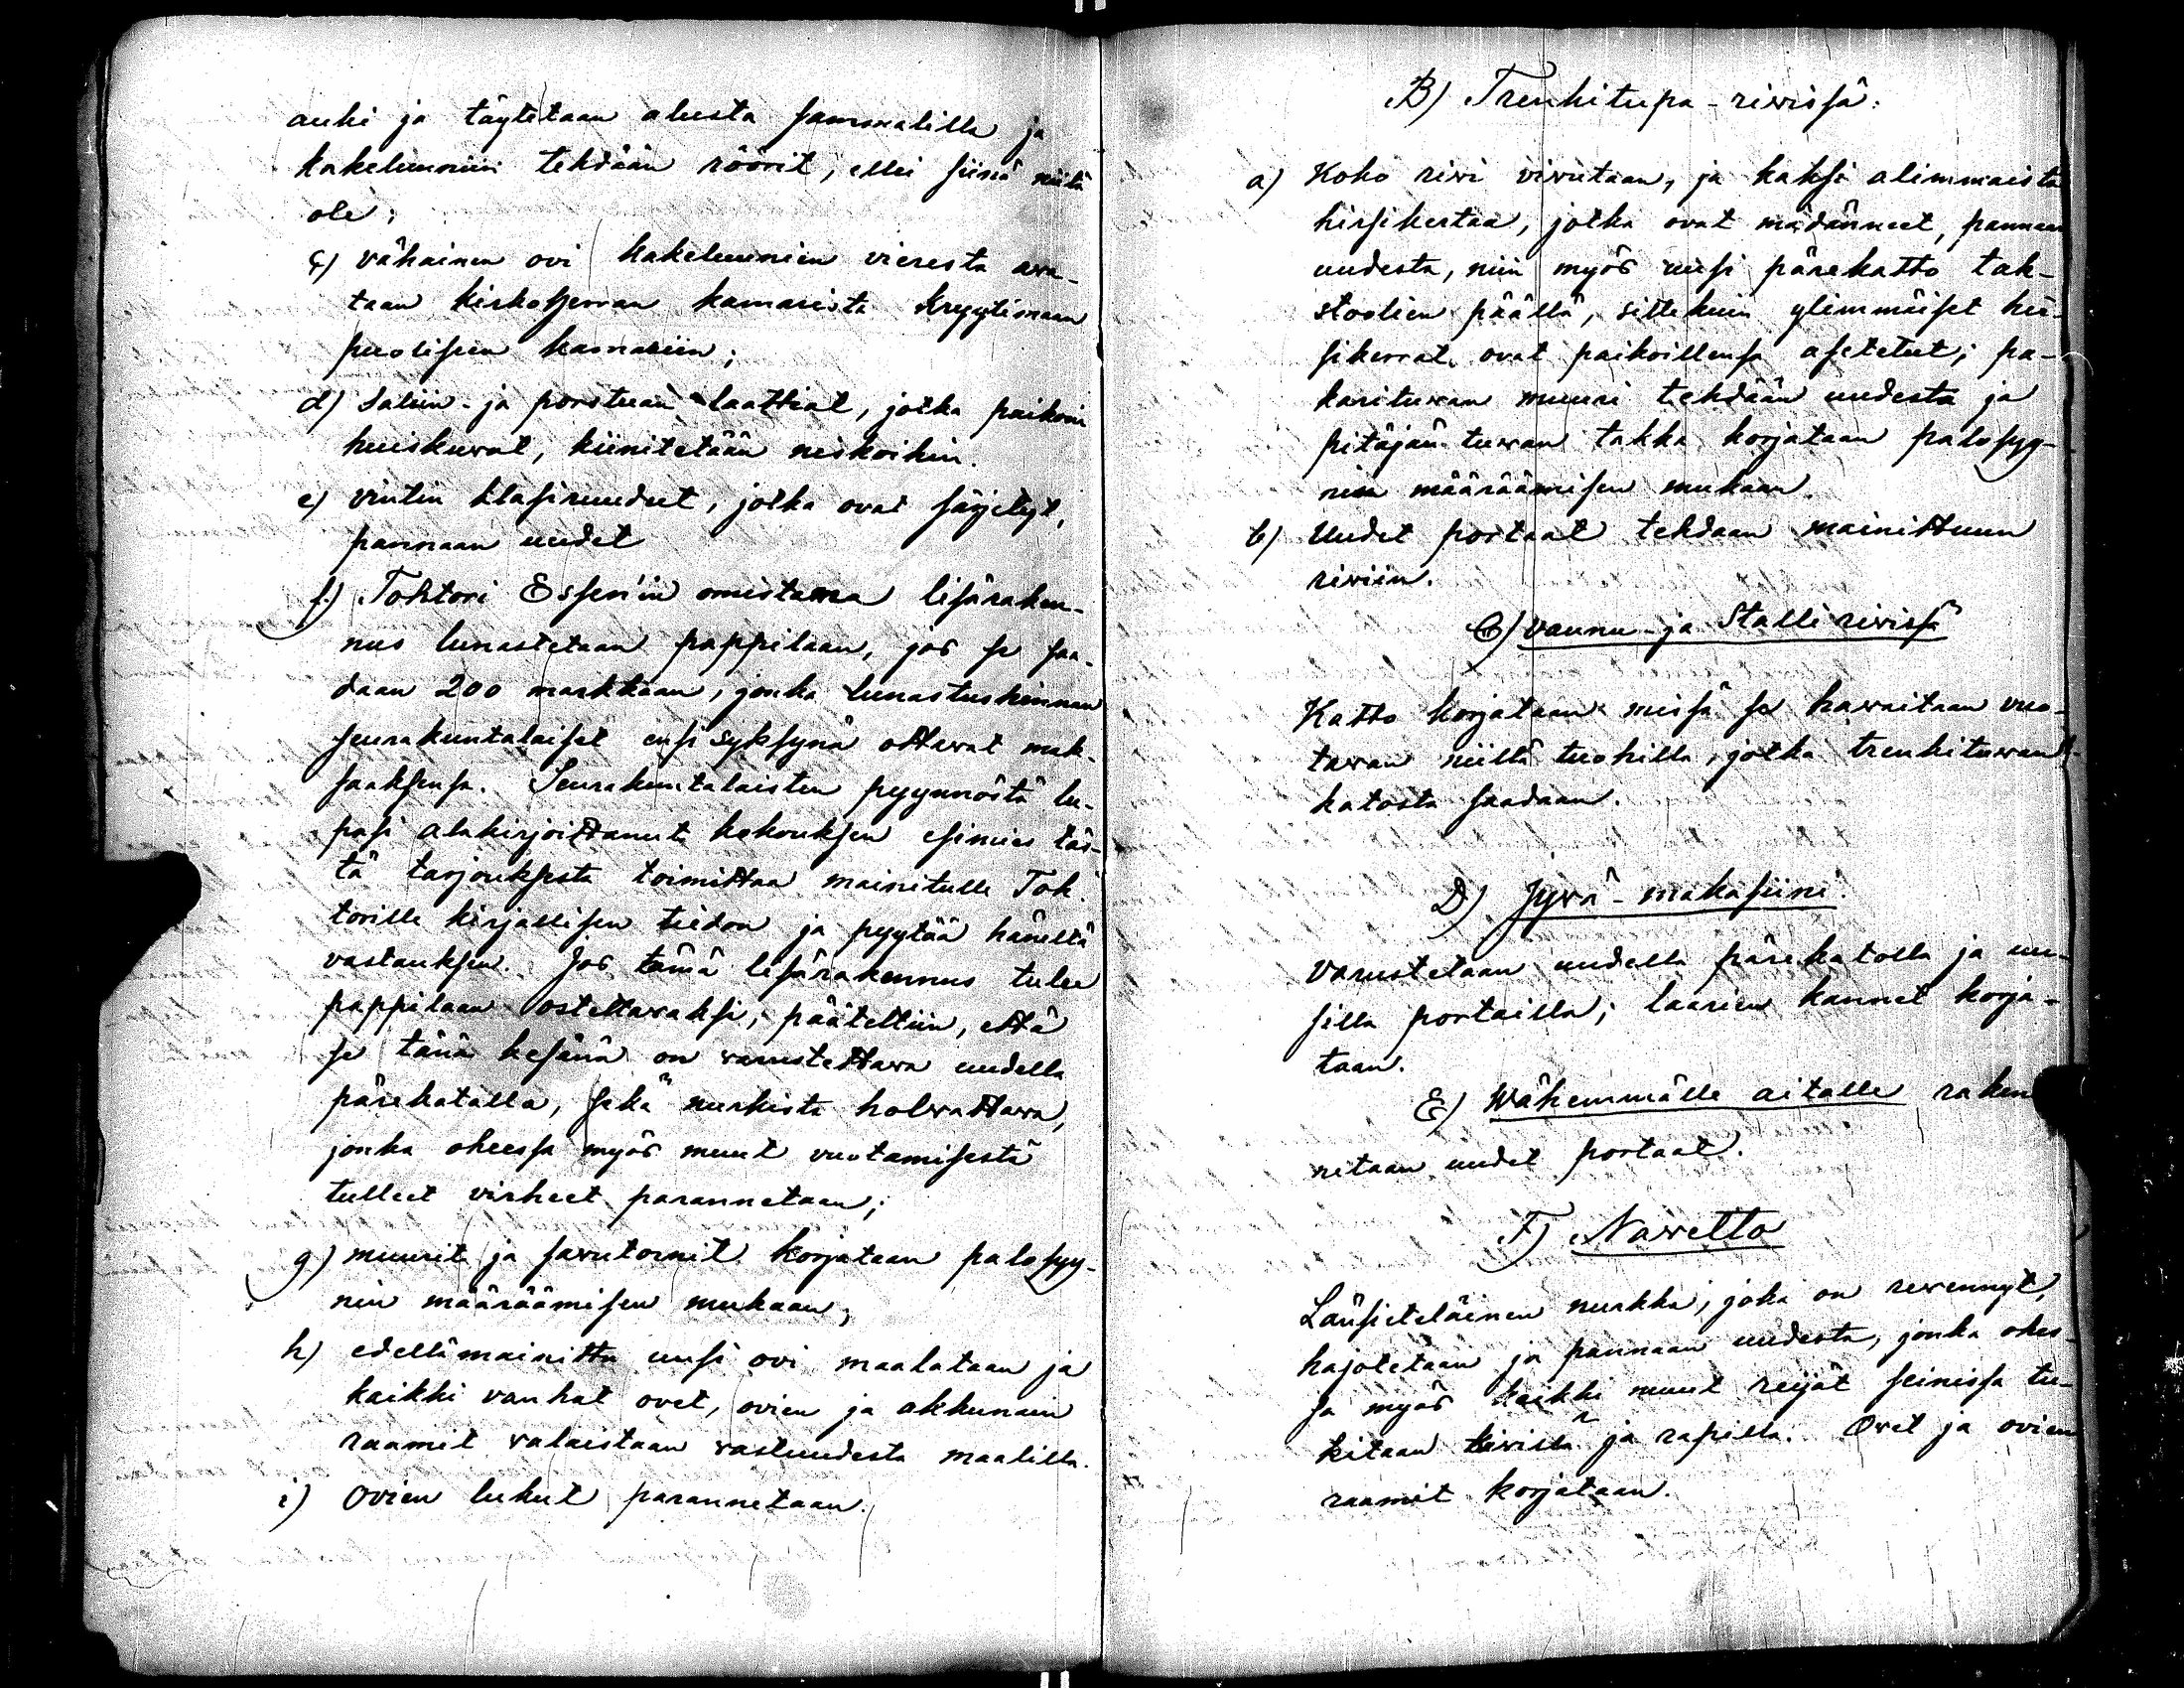 auki ja täytetaan alusta sammalilla ja
kakeluuniin tehdään röörit, ellei siinä niitä
ole;
c) vähäinen ovi kakeluunien vieresta awa-
taan kirkoherran kamarista kryytimaan
puoliseen kamariin;
d) Saliin- ja porstuan laattiat, jotka paikoin
huiskuwat, kiinitetään niskoihin.
e) vintin klasiruudut, jotka ovat särjetyt,
pannaan uudet
f.) Tohtori Essen'in omistama lisäraken-
nus lunastetaan pappilaan, jos se saa-
daan 200 markkaan, jonka lunastushinnan
seurakuntalaiset ensi syksynä ottawat mak-
saaksensa. Seurakuntalaisten pyynnöstä lu-
pasi alakirjoittanut kokouksen esimies täs-
tä tarjouksesta toimittaa mainitulle Toh-
torille kirjallisen tiedon ja pyytää häneltä
vastauksen. Jos tämä lisärakennus tulee
pappilaan ostettawaksi, päätettiin, että
se tänä kesänä on warustettawa uudella
pärekatalla, sekä nurkista holwattawa,
jonka oheessa myös muut vuotamisesta
tulleet virheet parannetaan;
g) muurit ja savutornit korjataan palosyy-
nin määräämisen mukaan;
h) edellämainittu uusi ovi maalataan ja
kaikki vanhat ovet, ovien ja akkunain
raamit valaistaan vastuudesta maalilla.
i) Ovien lukut parannetaan.
B) Trenkitupa-rivissä:
a) Koko rivi vivutaan, ja kaksi alimmaista
hirsikertaa, jotka ovat mädänneet, pannaan
uudesta, niin myös uusi pärekatto tak-
stoolien päällä, sittekuin ylimmäiset hir-
sikerrat ovat paikoillensa asetetut; pa-
karituwan muuri tehdään uudesta ja
pitäjän tuwan takka korjataan palosyy-
nin määräämisen mukaan.
b) Uudet portaat tehdaan mainittuun
riviin.
C) vaunu- ja Stalli rivissä
Katto korjataan missä se hawaitaan vuo-
tawan niillä tuohilla, jotka trenkituwan
katosta saadaan.
D) Jywä-makasiini
varustetaan uudella pärekatolla ja uu-
silla portailla; laarien kannet korja-
taan.
E) Wähemmälle aitalle raken
netaan uudet portaat.
F) Nawetto
Länsieteläinen nurkka, joka on rewennyt,
hajotetaan ja pannaan uudesta, jonka ohes-
sa myös kaikki muut reijät seinissa tu-
kitaan kivillä ja rapilla. Ovet ja ovien
raamit korjataan.